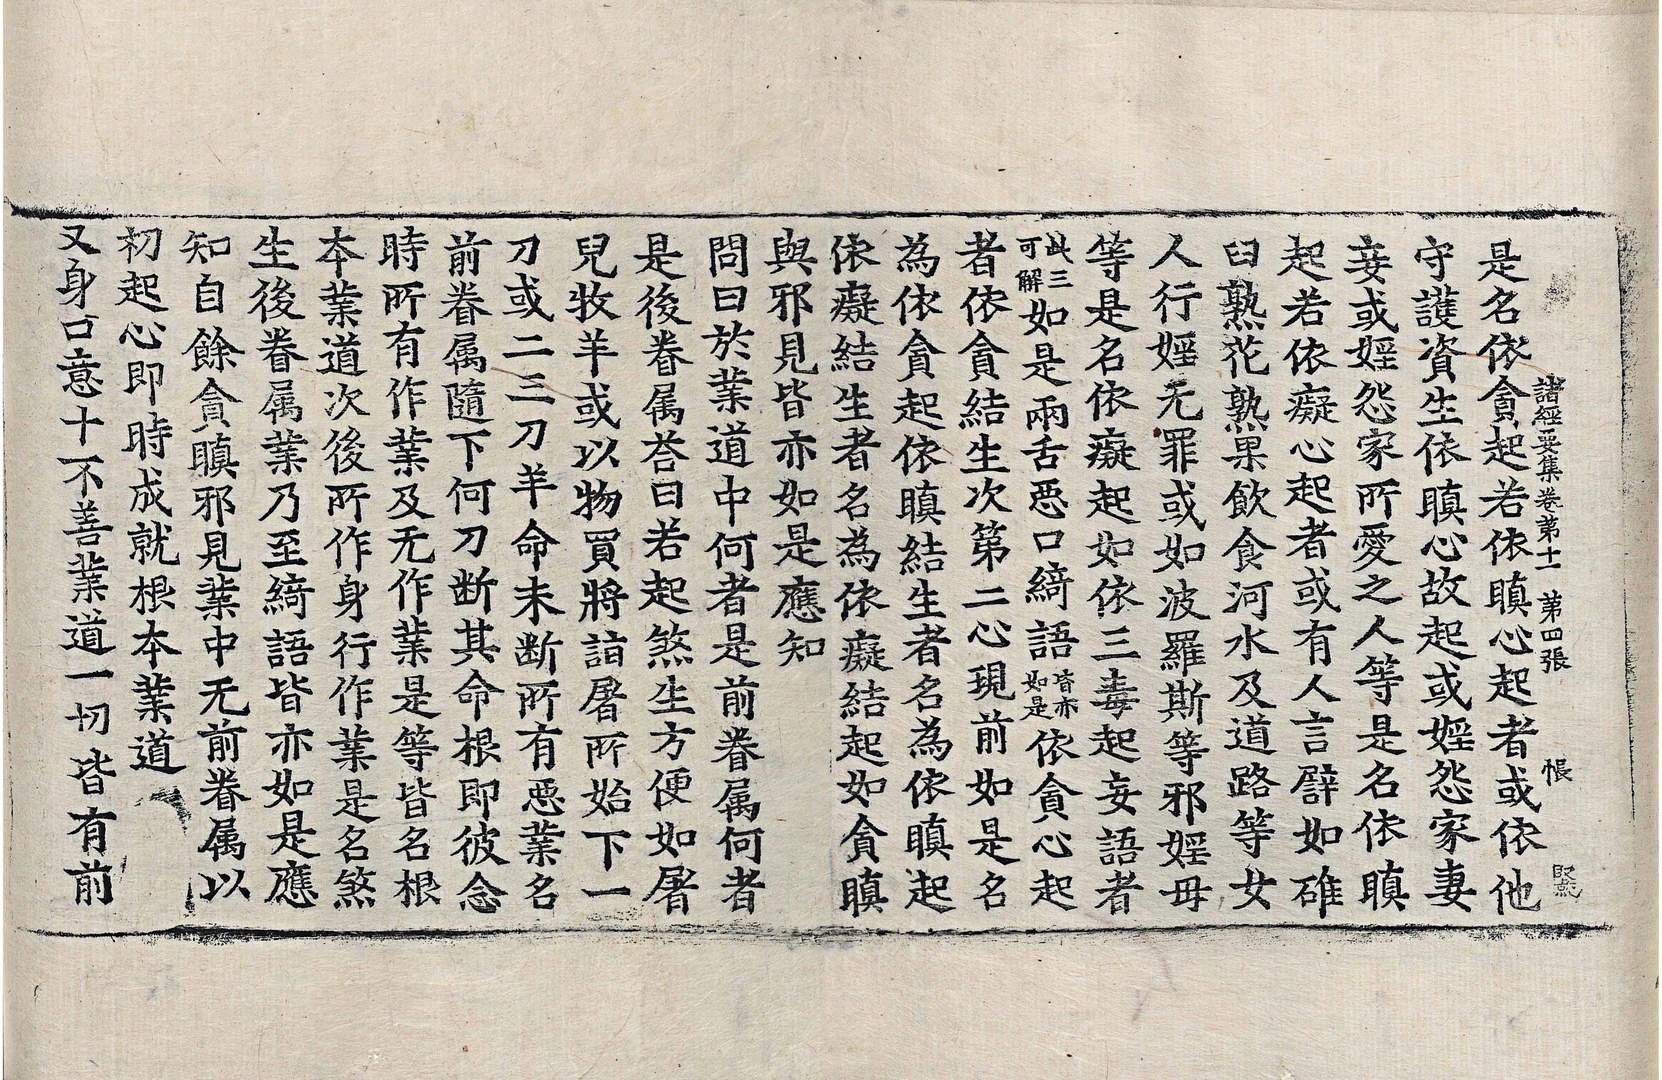 諸經要集卷第十一 第四張 帳
是名依貪起若依瞋心起者或依他
守護資生依瞋心故起或婬怨家妻
妾或婬怨家所愛之人等是名依瞋
起若依癡心起者或有人言譬如碓
臼熟花熟果飲食河水及道路等女
人行婬无罪或如波羅斯等邪婬母
等是名依癡起如依三毒起妄語者
此三可解如是兩舌惡口綺語皆亦如是依貪心起
者依貪結生次第二心現前如是名
為依貪起依瞋結生者名為依瞋起
依癡結生者名為依癡結起如貪瞋
與邪見皆亦如是應知
問曰於業道中何者是前眷属何者
是後眷属荅曰若起煞生方便如屠
兒牧羊或以物買將詣屠所始下一
刀或二三刀羊命未断所有惡業名
前眷属隨下何刀断其命根即彼念
時所有作業及无作業是等皆名根
本業道次後所作身行作業是名煞
生後眷属業乃至綺語皆亦如是應
知自餘貪瞋邪見業中无前眷属以
初起心即時成就根本業道
又身口意十不善業道一切皆有前